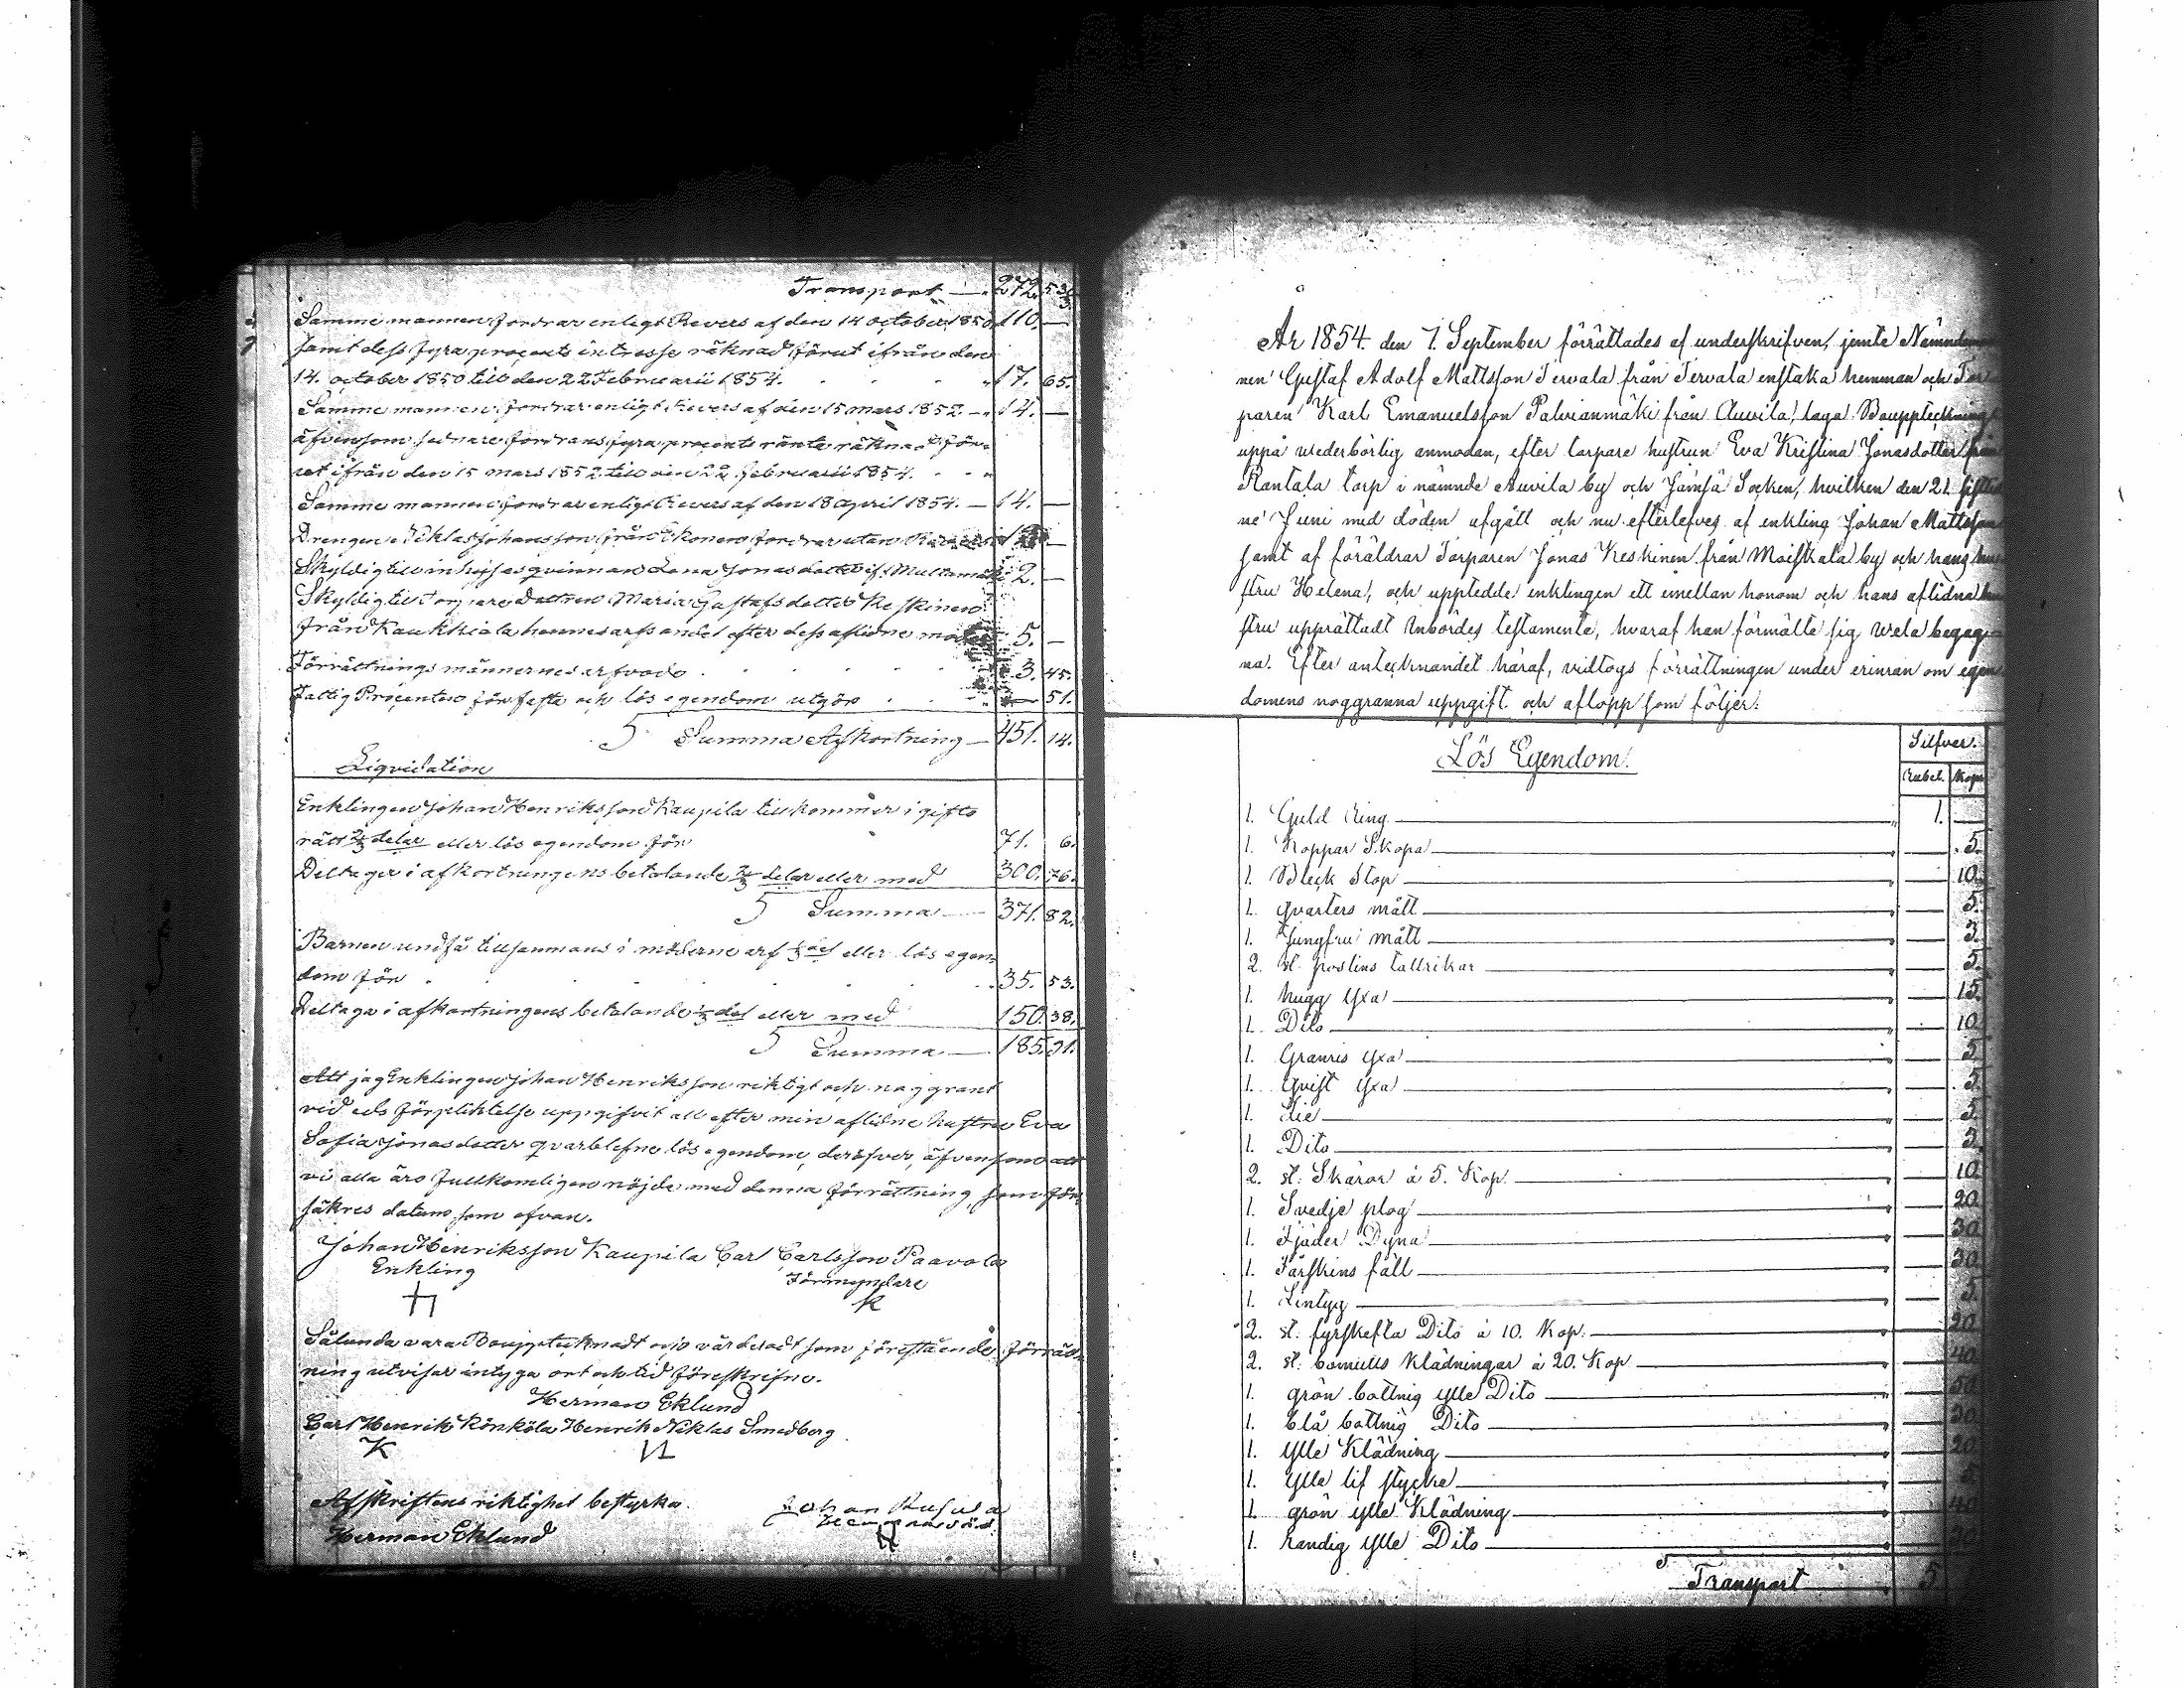 Transport — 272. 53
Samme mannen fordrar enligt Revers af den 14 october 1850 110. —
samt dess fyra procents intresse räknad förut ifrån den
14. october 1850 till den 22 Februarii 1854. 17. 65.
Samme mannen fordrar enligt Revers af den 15 mars 1852 — 14. —
äfvensom sednare fordrans fyra procents ränta räknad för-
ut ifrån den 15 mars 1852 till den 22 februarii 1854.
Samme mannen fordrar enligt Revers af den 18 April 1854. — 14. —
Drengen Niklas Johansson från Ekonen fordrar utan
Skyldig till inhyses qvinnan Lena Jonasdotter if. Multamäki 2. —
Skyldig till Torpare dottren Maria Gustafsdotter Keskinen
från Kaukkiala hennes arfs andel efter dess aflidne moder 5. —
Förrättnings männernes arfvode 3. 45.
Fattig Procenten för fasta och lös egendom utgör — 51.
S Summa Afkortning — 451. 14.
Liqvidation
Enklingen Johan Henriksson Kaupila tillkommer i gifto
rätt 2/3 delar eller lös egendom för 71. 6.
Deltager i afkortningens betalande 2/3 delar eller med 300. 76.
S Summa — 371. 82.
Barnen undfå tillsammans i möderne arf 1/3 del eller lös egen-
dom för 35. 53.
Deltaga i afkortningens betalande 1/3 del eller med 150. 38.
S Summa — 185. 91.
Att jag Enklingen Johan Henriksson riktigt och noggrant
vid eds förpliktelse uppgifvit all efter min aflidne hustru Eva
Sofia Jonasdotter qvarblefne lös egendom, deröfver, äfvensom att
vi alla äro fullkomligen nöjde med denna förrättning, som för-
säkres datum som ofvan.
Johan Henriksson Kaupila Carl Carlsson Paavola
Enkling Förmyndare
K
Sålunda vara Bouptecknadt och värderadt som förestående förrätt-
ning utvisar intyga ort och tid föreskrifne.
Herman Eklund
Carl Henrik Könköla Henrik Niklas Smedberg
K
Afskriftens riktighet bestyrka.
Herman Eklund Johan
År 1854. den 7. September förrättades af underskrifven, jemte Nämndeman
nen Gustaf Adolf Mattsson Tervala från Tervala enstaka hemman och Tor
paren Karl Emanuelsson Palvianmäki från Auvila, laga Bouppteckning
uppå wederbörlig anmodan, efter torpare hustrun Eva Kristina Jonasdotter från
Rantala torp i nämnde Auvila by och Jämsä Socken, hvilken den 21 sistled
ne Juni med döden afgått och nu efterlefves af enkling Johan Mattsson
samt af föräldrar Torparen Jonas Keskinen från Moiskala by och hans hu
stru Helena, och uppledde enklingen ett emellan honom och hans aflidna hu
stru upprättadt inbördes testamente, hvaraf han förmälte sig wela begag
na. Efter antecknandet häraf, vidtogs förrättningen under erinran om egen
domens noggranna uppgift och aflopp som följer:
Silfver.
Lös Egendom.
Rubel. Kop
1. Guld Ring — 1. —
1. Koppar Skopa — 5.
1. Bleck Stop — 10.
1. qvarters mått — 5.
1. Jungfru mått — 3.
2. st. poslins tallrikar — 5.
1. hugg Yxa — 15.
1. Dito — 10
1. Granris yxa — 5.
1. Qvist yxa — 5.
1. Lie — 5.
1. Dito — 3.
2. st. Skäror à 5. Kop. — 10.
1. Svedje plog — 20.
1. Fjäder Dyna — 30
1. Fårskins fäll — 30
1. Lintyg — 5.
2. st. fyrskefta Dito à 10. Kop. — 20
2. st. bomulls Klädningar à 20. Kop — 40
1. grön bottnig ylle Dito — 50
1. blå bottnig Dito — 30
1. Ylle Klädning — 20
1. Ylle lif stycke — 5
1. grön ylle Klädning — 40
1. randig ylle Dito — 30
Transport 5